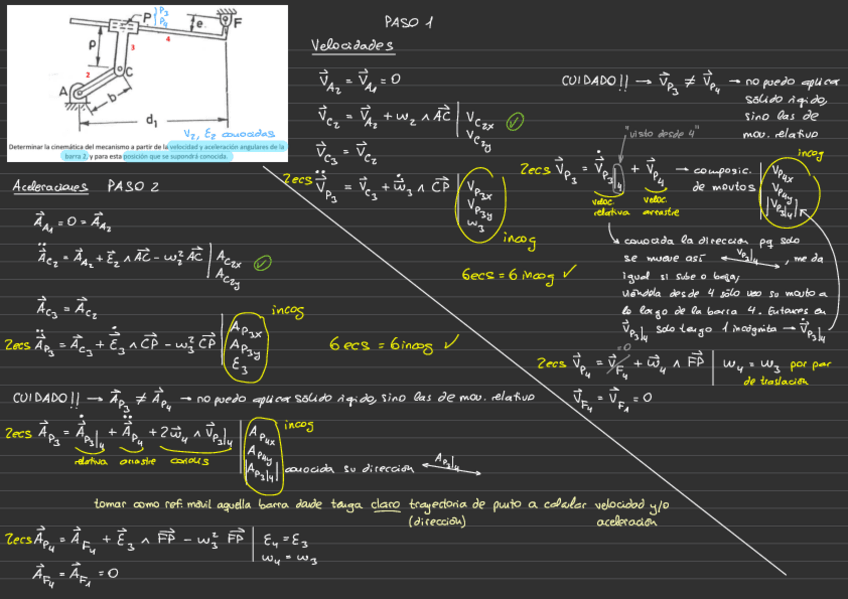 P P3
P4
e F
4
3
p
2
C
A
b
d1
V2, E2 conocidas
Determinar la cinemática del mecanismo a partir de la velocidad y aceleración angulares de la
barra 2, y para esta posición que se supondrá conocida.
PASO 1
Velocidades
V_A2 = V_A1 = 0
V_C2 = V_A2 + ω2 ∧ AC | V_C2x
V_C2y
V_C3 = V_C2
2ecs V_P3 = V_C3 + ω3 ∧ CP | V_P3x
V_P3y
ω3
incog
6ecs = 6 incog ✓
CUIDADO!! → V_P3 ≠ V_P4 → no puedo aplicar
sólido rígido,
sino las de
mov. relativo
"visto desde 4"
2ecs V_P3 = V_P3|4 + V_P4 → composic.
de movtos
veloc. relativa
veloc. arrastre
incog
V_P4x
V_P4y
|V_P3|4|
conocida la dirección pq solo
se mueve así V_P3|4, me da
igual si sube o baja,
viéndola desde 4 sólo veo su movto a
lo largo de la barra 4. Entonces en
V_P3|4 solo tengo 1 incógnita → V_P3|4
2ecs V_P4 = V_F4 + ω4 ∧ FP | ω4 = ω3 por par
de traslación
=0
V_F4 = V_F1 = 0
Aceleraciones PASO 2
A_A1 = 0 = A_A2
A_C2 = A_A2 + E2 ∧ AC - ω2² AC | A_C2x
A_C2y
A_C3 = A_C2
2ecs A_P3 = A_C3 + E3 ∧ CP - ω3² CP | A_P3x
A_P3y
E3
incog
6 ecs = 6 incog ✓
CUIDADO!! → A_P3 ≠ A_P4 → no puedo aplicar sólido rígido, sino las de mov. relativo
2ecs A_P3 = A_P3|4 + A_P4 + 2ω4 ∧ V_P3|4 | A_P4x
A_P4y
|A_P3|4| conocida su dirección A_P3|4
incog
relativa arrastre coriolis
tomar como ref. móvil aquella barra donde tenga claro trayectoria de punto a calcular velocidad y/o
(dirección) aceleración
2ecs A_P4 = A_F4 + E3 ∧ FP - ω3² FP | E4 = E3
ω4 = ω3
A_F4 = A_F1 = 0